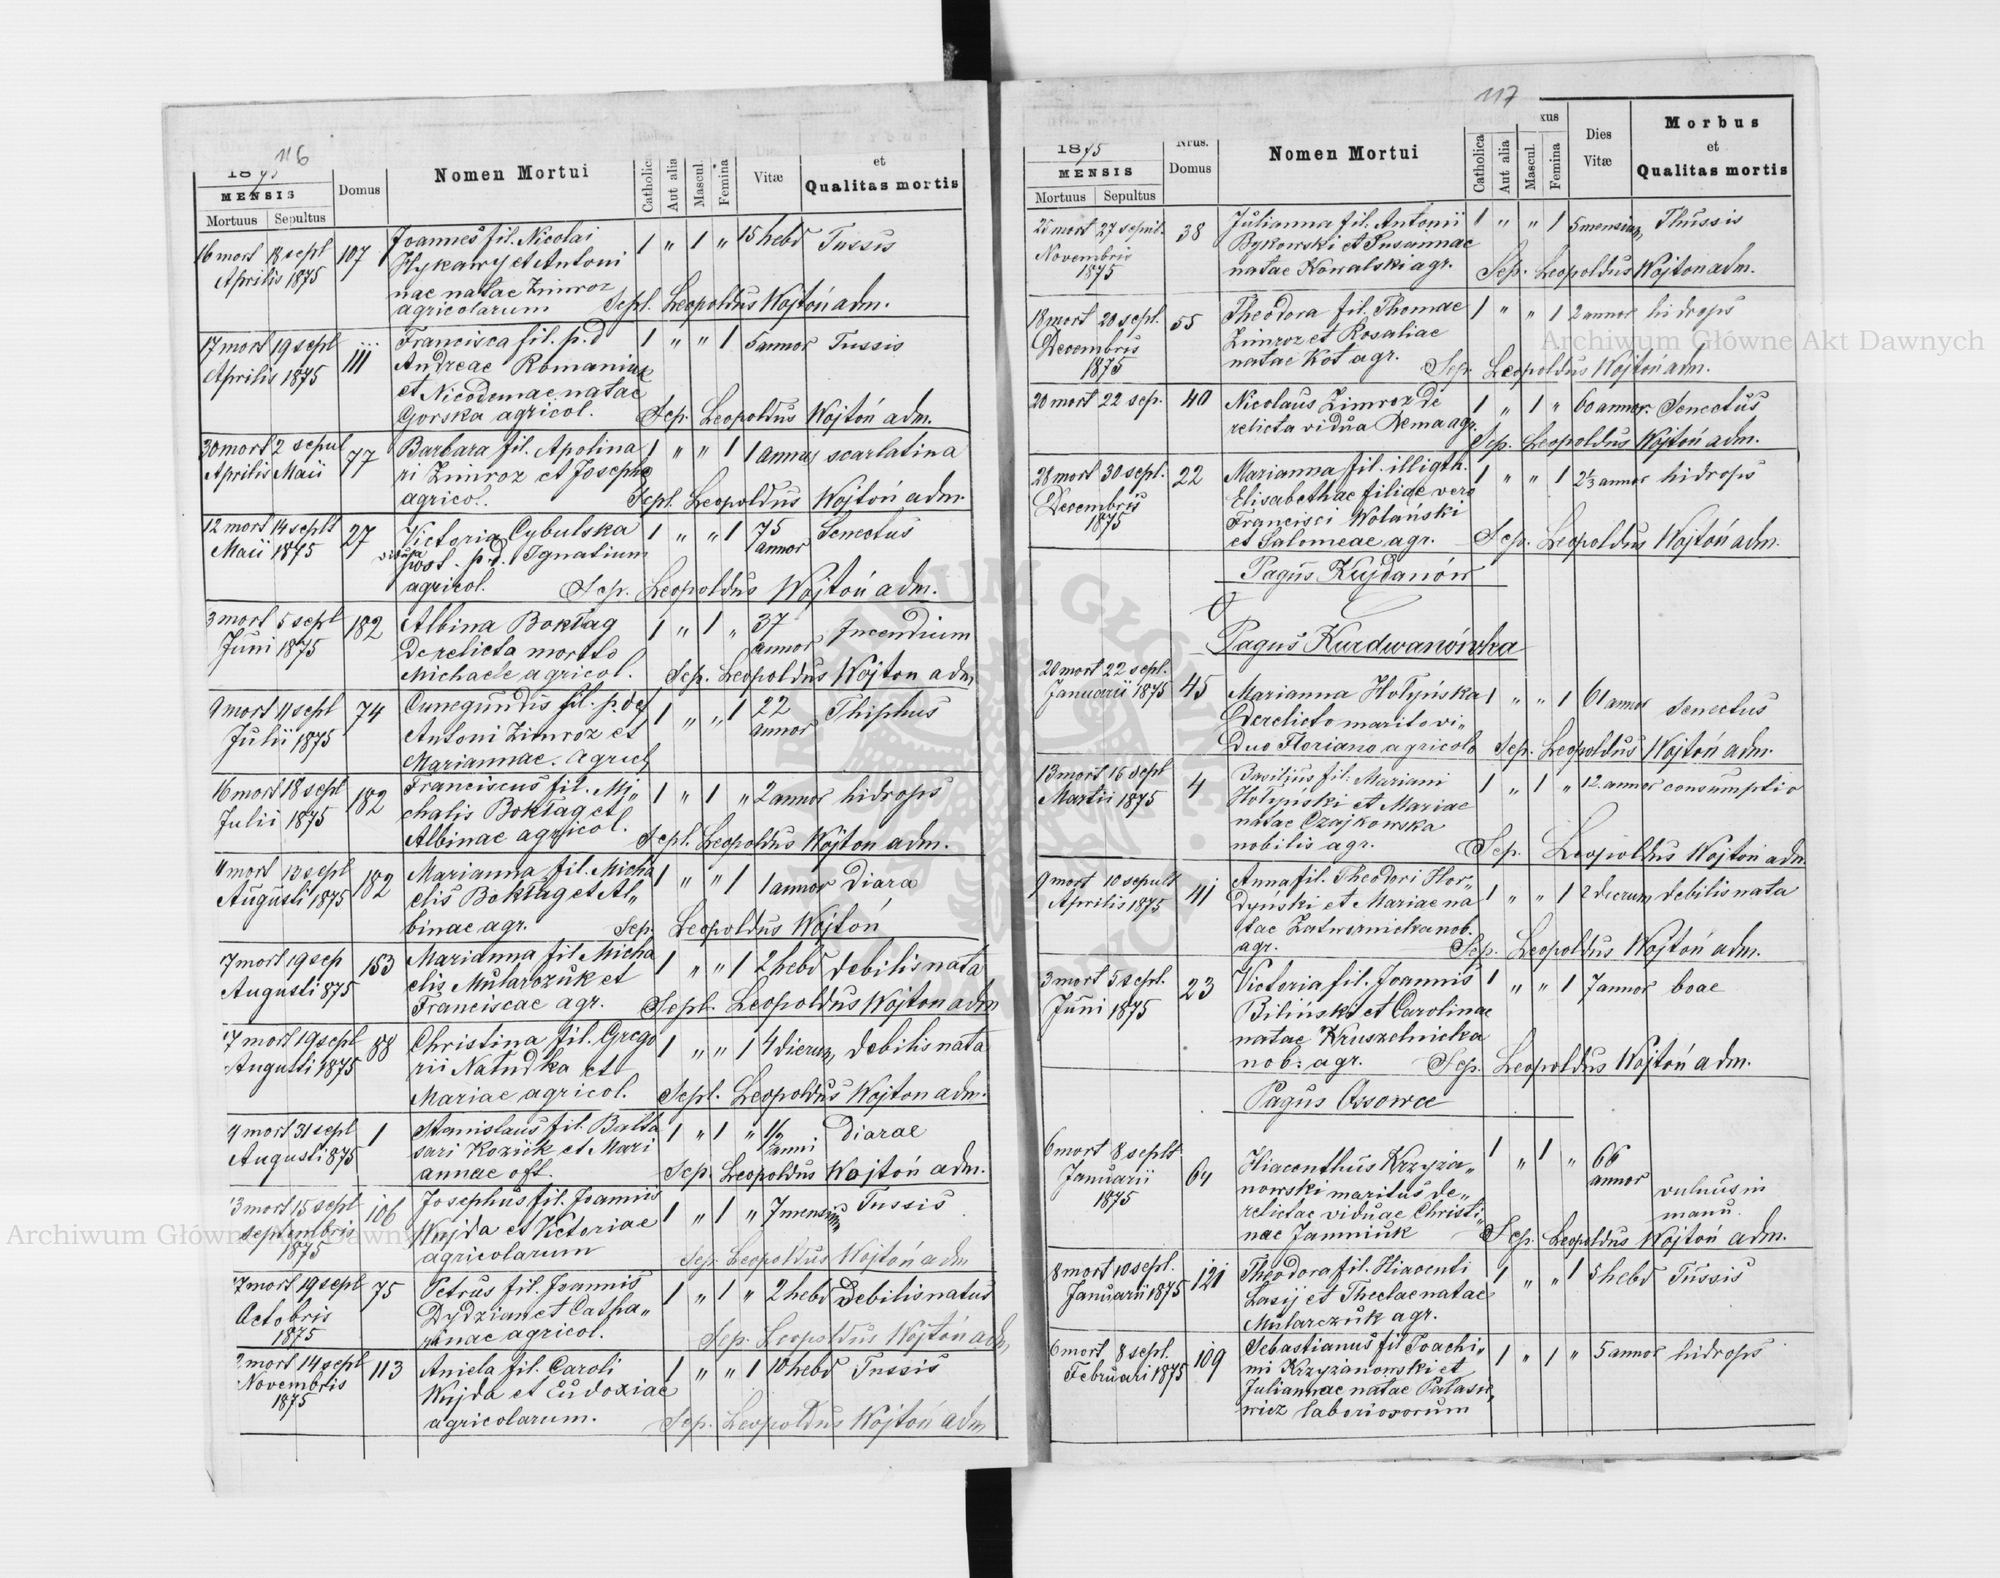 116
1875
MENSIS
Mortuus Sepultus
Domus
Nomen Mortui
Catholica
Aut alia
Mascul.
Femina
Vitæ
et
Qualitas mortis
16 mort 18 sepl 107 Joannes fil. Nicolai 1 " 1 " 15 hebd Tussis
Aprilis 1875 Hykawy et Antoni
nae natae Zimroz
agricolarum Sepl. Leopoldus Wojtoń adm.
17 mort 19 sepl 111 Francisca fil. p.d 1 " " 1 5 annor Tussis
Aprilis 1875 Andreae Romaniuk
et Nicodemae natae
Gorska agricol. Sep. Leopoldus Wojtoń adm.
30 mort 2 sepul 77 Barbara fil. Apolina 1 " " 1 1 anna scarlatina
Aprilis Maii ri Zimroz et Josephae
agricol. Sepl. Leopoldus Wojtoń adm.
12 mort 14 seplt 27 Victoria Cybulska 1 " " 1 75 Senectus
Maii 1875 vidua post. p.d. Ignatium annor
agricol. Sep. Leopoldus Wojtoń adm.
3 mort 5 sepl 182 Albina Boktag 1 " 1 " 37 Incendium
Juni 1875 Derelicta morito annor
Michaele agricol. Sep. Leopoldus Wojton adm
9 mort 11 sepl 74 Cunegundis fil. p. def 1 " " 1 22 Thiphus
Julii 1875 Antoni Zimroz et annor
Mariannae. agricl
16 mort 18 sepl 182 Franciscus fil. Mi- 1 " 1 " 2 annor hidrops
Julii 1875 chalis Boktag et
Albinae agricol. Sepl. Leopoldus Wojton adm.
11 mort 13 sepl 182 Marianna fil. Micha 1 " " 1 1 annor Diara
Augusti 1875 elis Boktag et Al-
binae agr. Sep. Leopoldus Wojtoń
17 mort 19 sep 153 Marianna fil Micha 1 " " 1 2 hebd debilis nata
Augusti 875 elis Mularczuk et
Franciscae agr. Sepl. Leopoldus Wojton adm
17 mort 19 sepl 88 Christina fil. Grego 1 " " 1 4 dierum debilis nata
Augusti 1875 rii Natudka et
Mariae agricol. Sepl. Leopoldus Wojton adm.
mort 31 sepl 1 Stanislaus fil. Balta 1 " 1 " 1/2 Diarae
Augusti 875 sari Koziik et Mari anni
annae oft. Sep. Leopoldus Wojtoń adm.
13 mort 15 sepl 106 Josephus fil. Joannis 1 " 1 " 7 mensium Tussis
septembris Kujda et Victoriae
1875 agricolarum Sep. Leopoldus Wojtoń adm
17 mort 19 sepl 75 Petrus fil. Joannis 1 " 1 " 2 hebd Debilis natus
Octobris Dydzian et Catha"
1875 rinae agricol. Sep. Leopoldus Wojtoń adm
mort 14 sepl 113 Aniela fil. Caroli 1 " " 1 10 hebd Tussis
Novembris Kujda et Eudoxiae
1875 agricolarum. Sep. Leopoldus Wojtoń adm
117
1875
MENSIS
Mortuus Sepultus
Nrus.
Domus
Nomen Mortui
Catholica
Aut alia
Mascul.
Femina
xus
Dies
Vitæ
Morbus
et
Qualitas mortis
25 mort 27 sepul. 38 Julianna fil. Antonii 1 " " 1 5 mensium Thussis
Novembris Bykowski et Susannae
1875 natae Kowalski agr. Sep. Leopoldus Wojton adm.
18 mort 20 sepl. 55 Theodora fil. Thomae 1 " " 1 2 annor hidrops
Decembris Zimroz et Rosaliae
1875 natae Kot agr. Sep. Leopoldus Wojtoń adm.
20 mort 22 sep. 40 Nicolaus Zimroz de 1 " 1 " 60 annor. Senectus
relicta vidua Dema agr.
Sep. Leopoldus Wojtoń adm.
28 mort 30 sepl. 22 Marianna fil. illigth. 1 " " 1 2 1/2 annor hidrops
Decembris Elisabethae filiae vero
1875 Francisci Wolański
et Salomeae agr. Sep. Leopoldus Wojtoń adm.
Pagus Kujdanów
Pagus Kurdwanówka
20 mort 22 sepl.
Januarii 1875 45 Marianna Hołyńska 1 " " 1 61 annor Senectus
Derelicto marito vi-
duo Floriano agricolo Sep. Leopoldus Wojtoń adm.
13 mort 15 sepl 4 Basilius fil. Mariani 1 " 1 " 12 annor consumptio
Martii 1875 Hołyński et Mariae
natae Czajkowska
nobilis agr. Sep. Leopoldus Wojtoń adm
9 mort 10 sepult 41 Anna fil. Theodori Hor" 1 " " 1 2 dierum debilis nata
Aprilis 1875 dyński et Mariae na
tae Zatwirnicka nob.
agr. Sep. Leopoldus Wojtoń adm.
3 mort 5 sepl. 23 Victoria fil. Joannis 1 " " 1 7 annor boae
Juni 1875 Biliński et Carolinae
natae Kruszelnicka
nob: agr. Sep. Leopoldus Wojtoń adm.
Pagus Ossowce
6 mort 8 seplt 64 Hiacenthus Krzyża" 1 " 1 " 66
Januarii nowski maritus de" annor vulnus in
1875 relictae viduae Christi" manu.
nae Jamniuk Sep. Leopoldus Wojtoń adm.
8 mort 10 sepl. 121 Theodora fil. Hiacenti 1 " " 1 5 hebd Tussis
Januarii 1875 Lasij et Theclae natae
Mularczuk agr.
6 mort 8 sepl. 109 Sebastianus fil Joachi" 1 " 1 " 5 annor hidrops
Februari 1875 mi Krzyżanowski et
Juliannae natae Patasie"
wicz laboriosorum
Archiwum Główne Akt Dawnych
Archiwum Główne Akt Dawnych